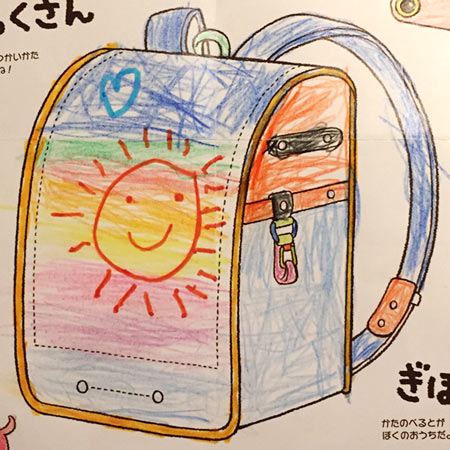 っくさん
つかいかた
ね！
ぎぼ
かたのべるとが
ぼくのおうちだよ